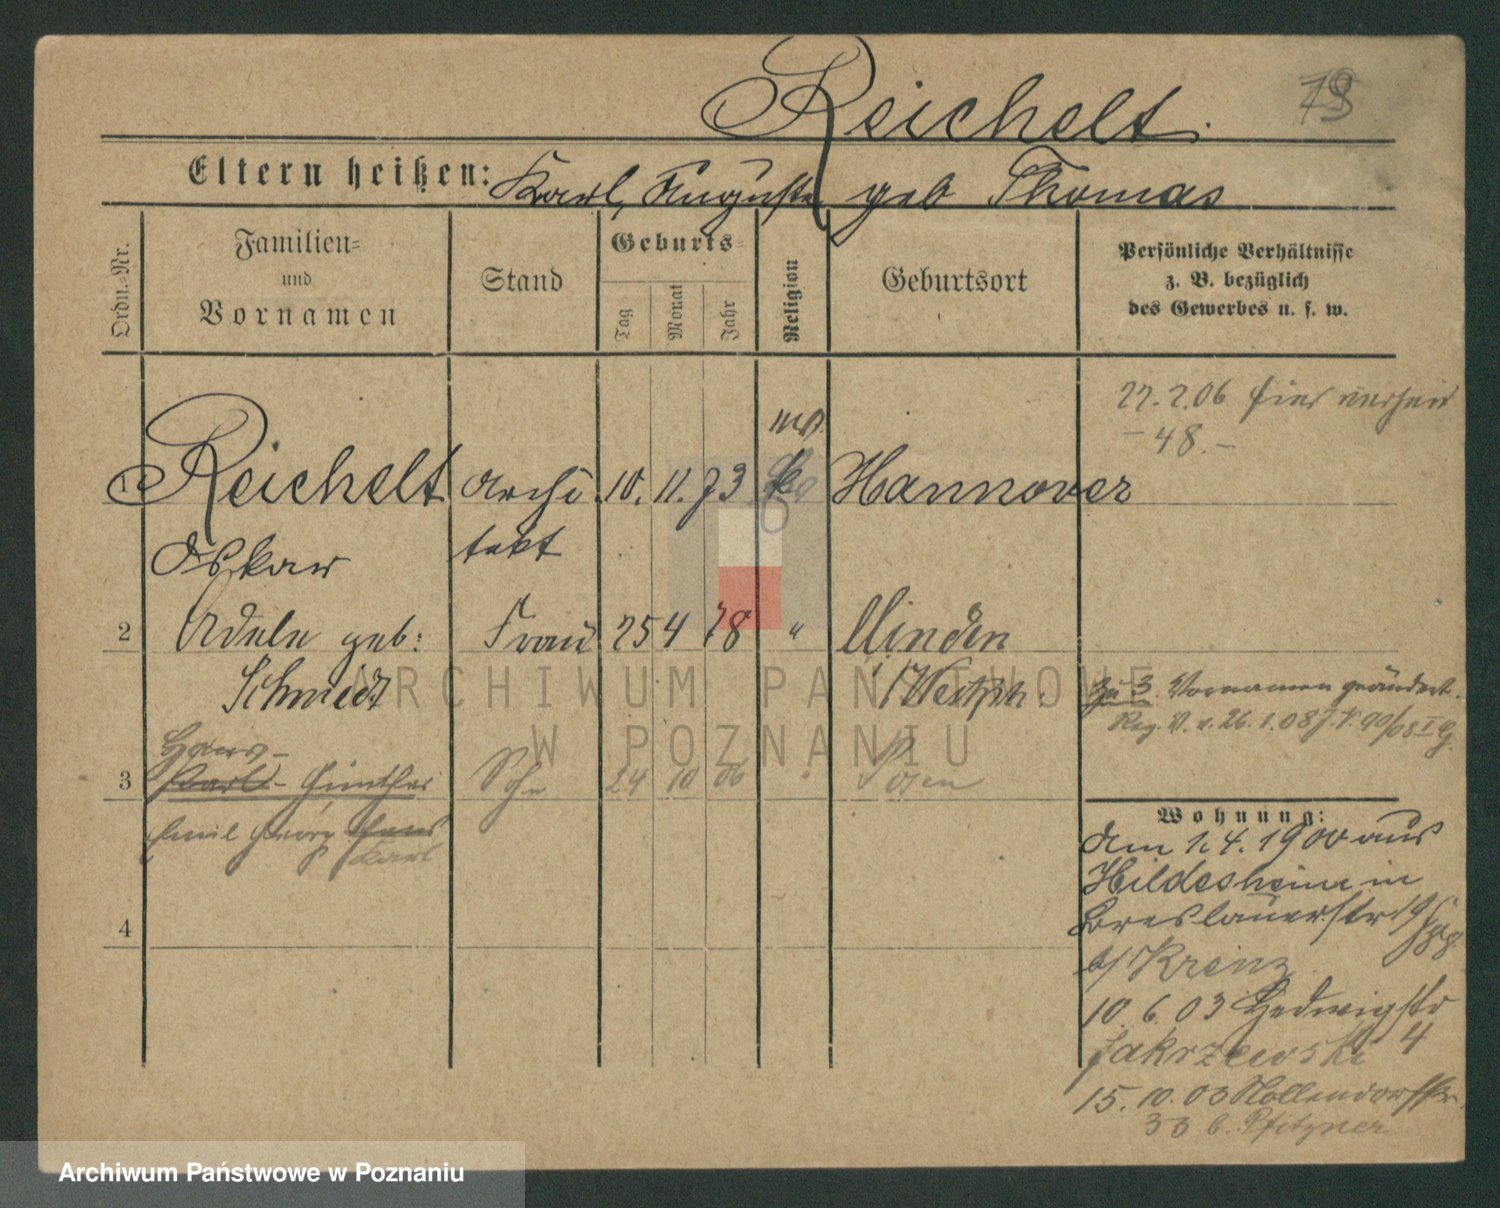 Reichelt.
Eltern heißen: Karl, Auguste geb Thomas
Ordn.-Nr.
Familien- und Vornamen
Stand
Geburts-
Tag
Monat
Jahr
Religion
Geburtsort
Persönliche Verhältnisse
z. B. bezüglich
des Gewerbes u. s. w.
22.2.06 hier
– 48. –
1 Reichelt Archi 10. 11. 73 Hannover
Oskar tekt
2 Adele geb: Frau 25 4 78 " Minden
Schmidt i/Westph.
Zu 3. Vornamen geändert.
Reg. V. v. 26.1.08
Hans-
3 Karl-Günther Sohn 24 10 06 " Posen
Emil Georg Hans
Karl
4
Wohnung:
Am 1.4.1900 aus
Hildesheim in
Breslauerstr 19
b/ Krenz
10.6.03 Hedwigstr
Jakrzewski 4
15.10.03 Nollendorfstr.
33 b. Pfitzner
ARCHIWUM PAŃSTWOWE
W POZNANIU
Archiwum Państwowe w Poznaniu